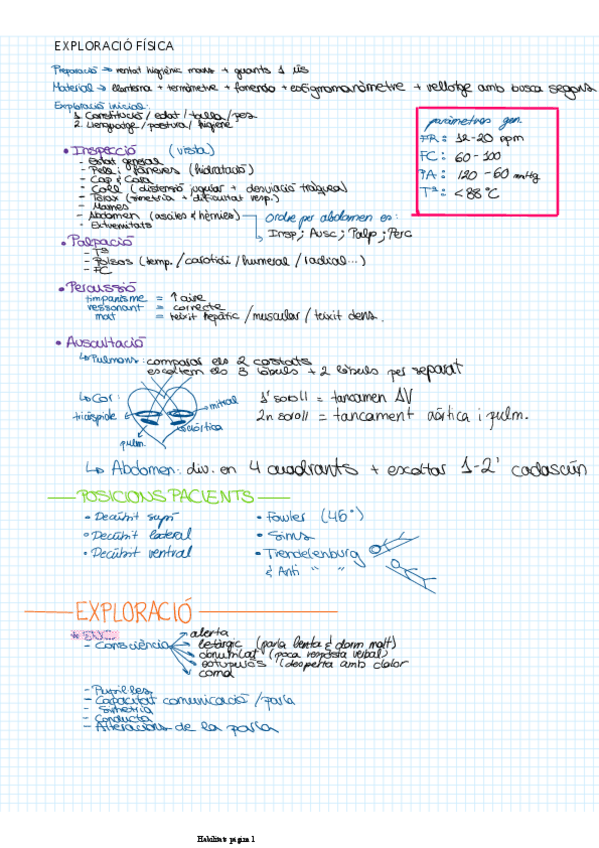 EXPLORACIÓ FÍSICA
Preparació → rentat higiènic mans + guants 1 ús
Material → llanterna + termòmetre + fonendo + esfigmomanòmetre + rellotge amb busca segons
Exploració inicial:
1. Constitució / edat / talla / pes
2. Llenguatge / postura / higiene
paràmetres gen.
FR: 12-20 rpm
FC: 60-100
PA: 120-60 mmHg
Tª: <38 °C
• Inspecció (vista)
- Estat general
- Pell i fàneres (hidratació)
- Cap i Cara
- Coll (distensió jugular + desviació traqueal)
- Tòrax (simetria + dificultat resp.)
- Mames
- Abdomen (ascites & hèrnies) → Ordre per abdomen és:
Insp; Ausc; Palp; Perc
- Extremitats
• Palpació
- Tª
- Polsos (temp. / carotidi / humeral / radial...)
- FC
• Percussió
timpanisme = ↑ aire
ressonant = correcte
mat = teixit hepàtic / muscular / teixit dens.
• Auscultació
↳ Pulmons: comparar els 2 costats
escoltem els 3 lòbuls + 2 lòbuls per separat
↳ Cor:
tricúspide
mitral
aòrtica
pulm.
1r soroll = tancamen AV
2n soroll = tancament aòrtica i pulm.
↳ Abdomen: div. en 4 quadrants + escoltar 1-2' cadascún
POSICIONS PACIENTS
• Decúbit supí
• Decúbit lateral
• Decúbit ventral
• Fowler (45°)
• Sims
• Trendelenburg
& Anti " "
EXPLORACIÓ
- Consciència
alerta
letàrgic (parla lenta & dorm molt)
obnubilat (poca resposta verbal)
estuporós (desperta amb dolor
coma
- Pupil·les
- Capacitat comunicació / parla
- Simetria
- Conducta
- Alteracions de la parla
Habilitats página 1